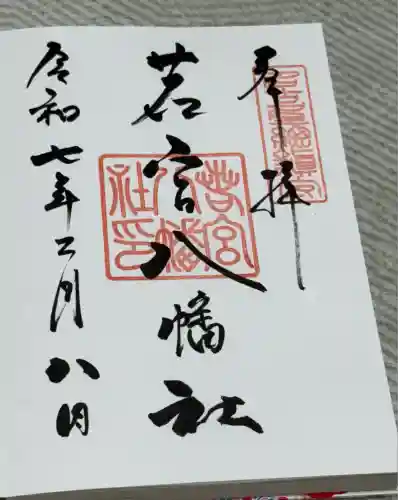 奉拝
若宮八幡社
若宮八幡社印
令和七年二月八日